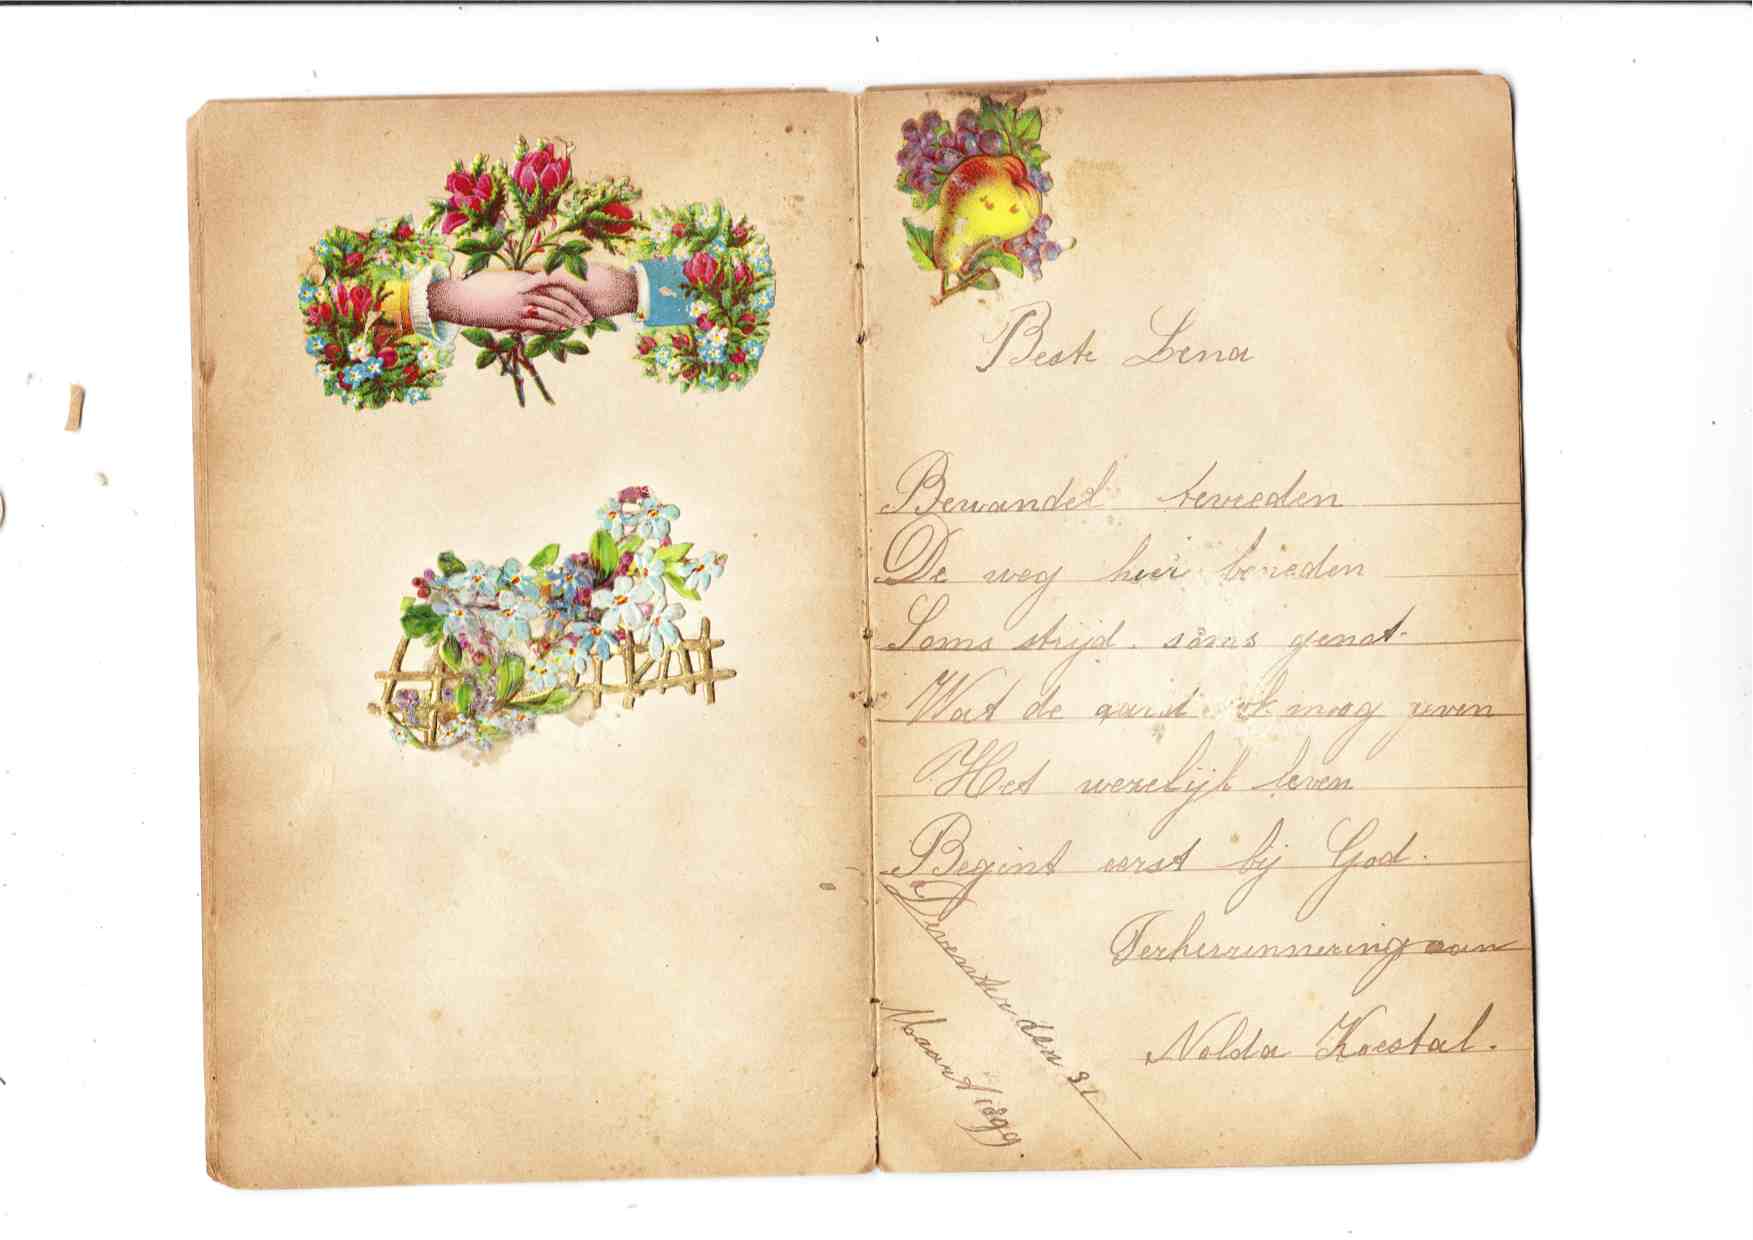 Beste Lena
Bewandel tevreden
De weg hier beneden
Soms strijd. soms genot.
Wat de aard ok moog geven
Het wezelijk leven
Begint eerst bij God.
Terherrinnering aan
Nolda Koestal.
Deventer den 31
Maart 1899.